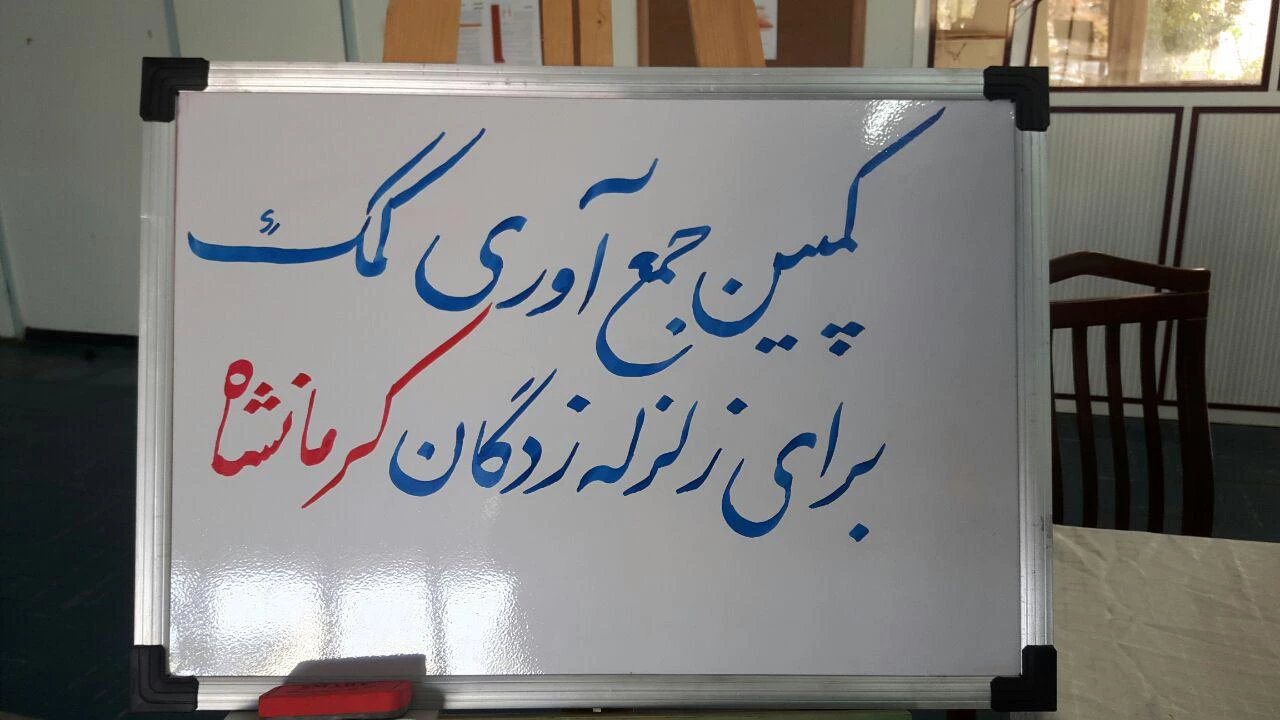 کمپین جمع آوری کمک
برای زلزله زدگان کرمانشاه